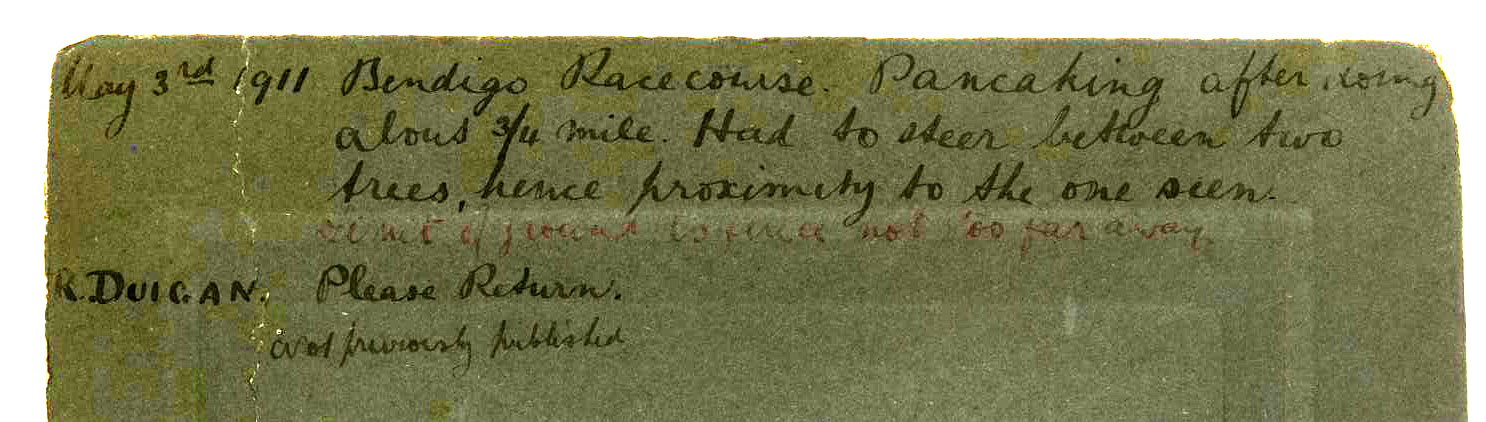 May 3rd 1911 Bendigo Racecourse. Pancaking after going
about 3/4 mile. Had to steer between two
trees, hence proximity to the one seen.
not too far away
R. DUIGAN. Please Return.
Not previously published